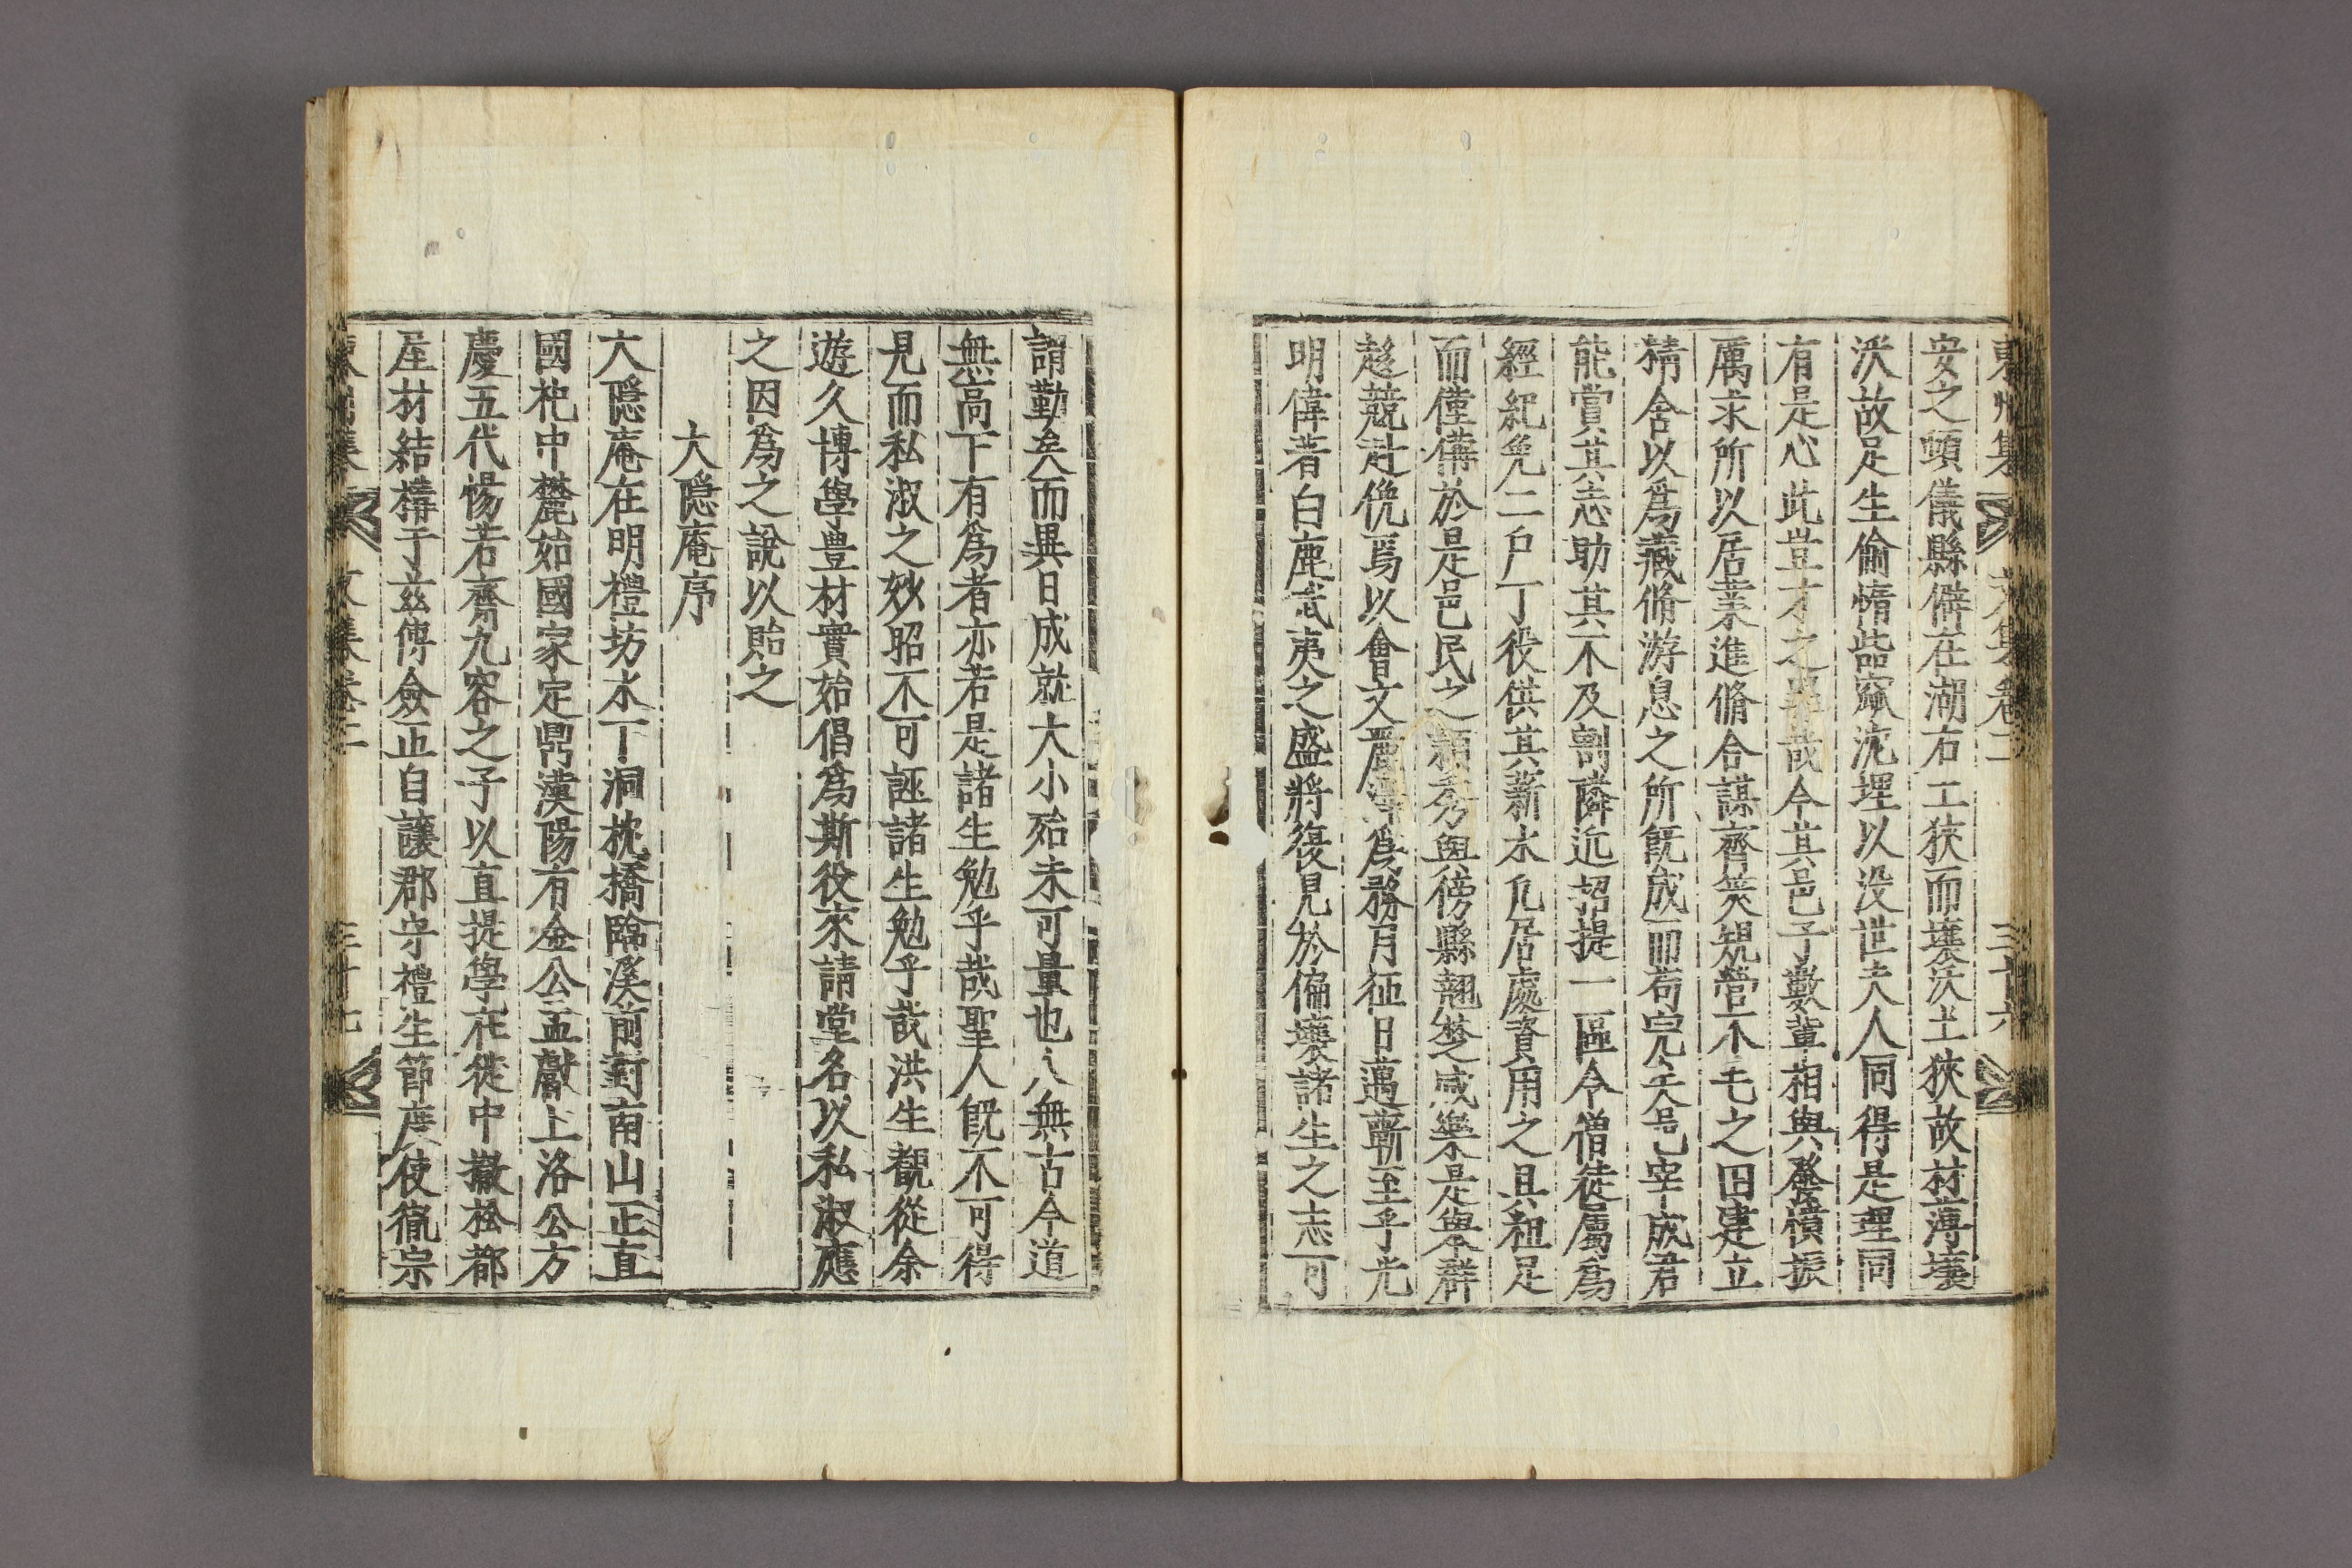 安之頭儀縣僻在湖右工狹而壤沃土狹故材薄壤
沃故足生偷惰呰窳沈埋以没世夫人同得是理同
有是心此豈才之罪哉今其邑子數輩相與發憤振
厲求所以居業進脩合謀齊筴規營不毛之田建立
精舍以爲藏脩游息之所旣成而苟完矣邑宰成君
能賞其志助其不及割隣近招提一區令僧徒屬爲
經紀免二戶丁役供其薪水凡居處資用之具粗足
而僅備於是邑民之穎秀與傍縣翹楚咸樂是擧群
趍競赴俛焉以會文麗澤爲務月征日邁蘄至乎光
明偉著白鹿武夷之盛將復見於偏壤諸生之志可
謂勤矣而異日成就大小殆未可量也人無古今道
無高下有爲者亦若是諸生勉乎哉聖人旣不可得
見而私淑之妙昭不可誣諸生勉乎哉洪生覩從余
遊久博學豊材實始倡爲斯役來請堂名以私淑應
之因爲之說以貽之
大隱庵序
大隱庵在明禮坊水丁洞枕橋臨溪前對南山正直
國杝中麓始國家定鼎漢陽有金公孟獻上洛公方
慶五代惕若齋九容之子以直提學在徙中撤松都
屋材結構于玆傳僉正自讓郡守禮生節度使胤宗
文集卷二